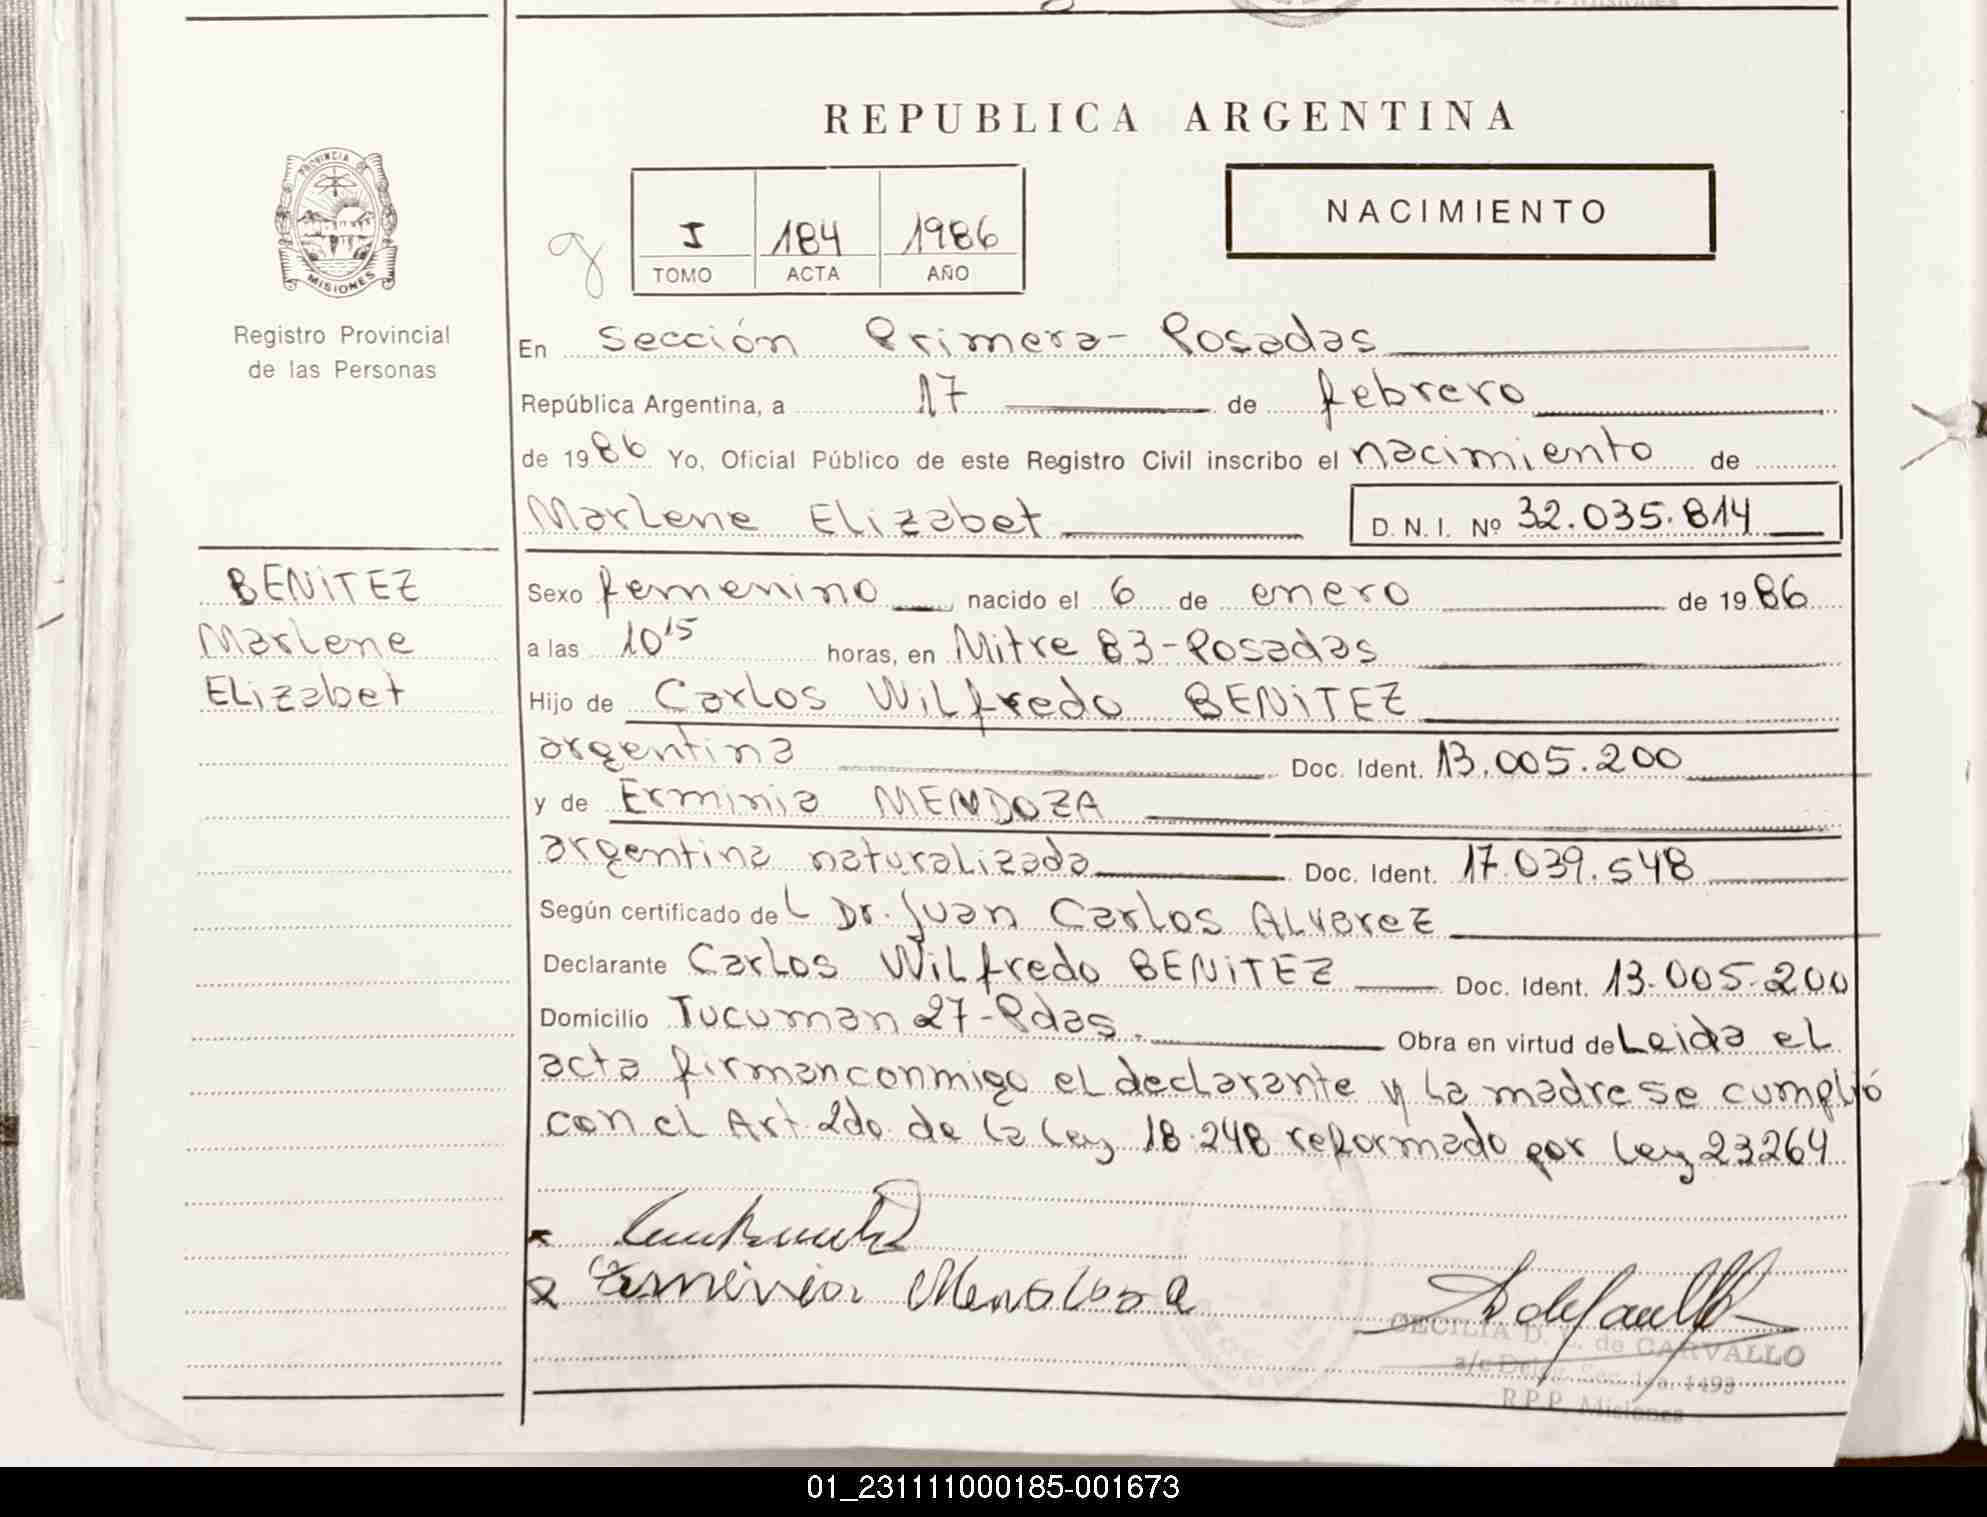 REPUBLICA ARGENTINA
PROVINCIA DE
MISIONES
Registro Provincial
de las Personas
I 184 1986
TOMO ACTA AÑO
NACIMIENTO
En Sección Primera- Posadas
República Argentina, a 17 de febrero
de 1986 Yo, Oficial Público de este Registro Civil inscribo el nacimiento de
Marlene Elizabet D.N.I. Nº 32.035.814
BENITEZ
Marlene
Elizabet
Sexo femenino nacido el 6 de enero de 1986
a las 10 15 horas, en Mitre 83-Posadas
Hijo de Carlos Wilfredo BENITEZ
argentina Doc. Ident. 13.005.200
y de Erminia MENDOZA
argentina naturalizada Doc. Ident. 17.039.548
Según certificado del Dr. Juan Carlos Alvarez
Declarante Carlos Wilfredo BENITEZ Doc. Ident. 13.005.200
Domicilio Tucuman 27-Pdas. Obra en virtud de Leida el
acta firman conmigo el declarante y la madre se cumplió
con el Art. 2do. de la Ley 18.248 reformado por Ley 23264
Erminia Mendoza
CECILIA D. de CARVALLO
1493
R.P.P. Misiones
01_231111000185-001673